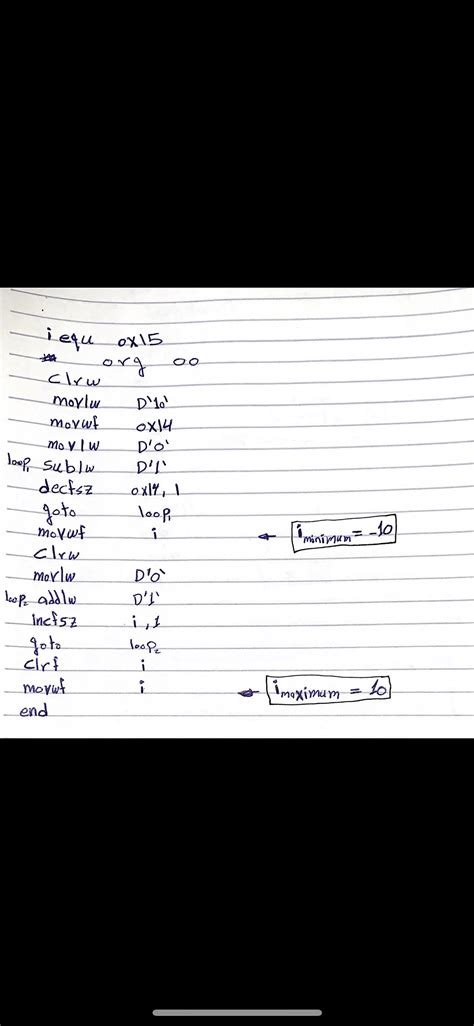 i equ 0x15
org 00
clrw
movlw D'10'
movwf 0x14
movlw D'0'
loop1 sublw D'1'
decfsz 0x14, 1
goto loop1
movwf i ← i minimum = -10
clrw
movlw D'0'
loop2 addlw D'1'
incfsz i, 1
goto loop2
clrf i
movwf i ← i maximum = 10
end